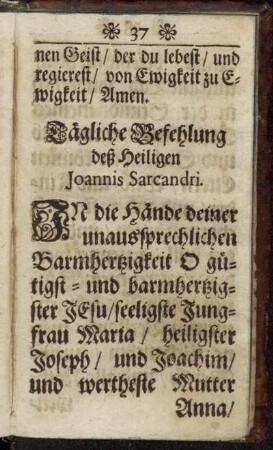 ❋ 37 ❋
nen Geist / der du lebest / und
regierest / von Ewigkeit zu E-
wigkeit / Amen.
Tägliche Befehlung
deß Heiligen
Joannis Sarcandri.
IN die Hände deiner
unaussprechlichen
Barmhertzigkeit O gü-
tigst- und barmhertzig-
ster JEsu / seeligste Jung-
frau Maria / heiligster
Joseph / und Joachim /
und wertheste Mutter
Anna /